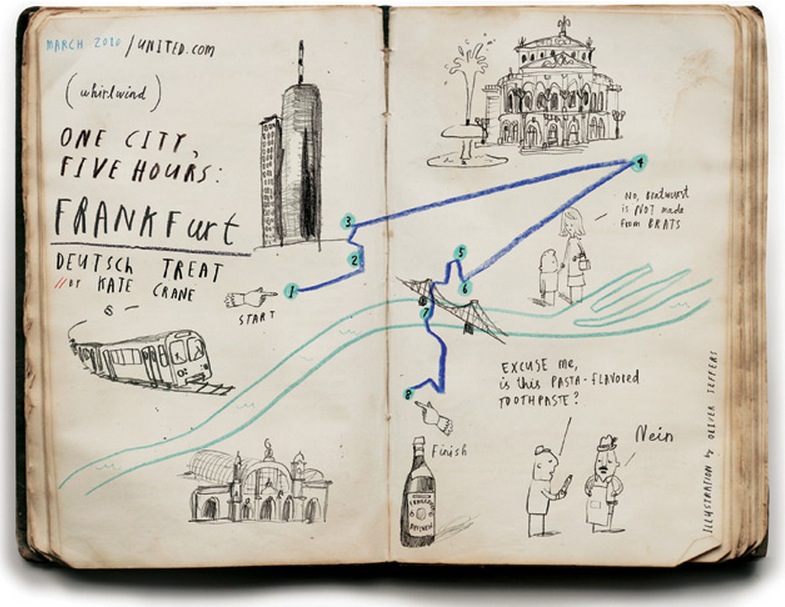 MARCH 2010 / UNITED.COM
(whirlwind)
ONE CITY,
FIVE HOURS:
FRANKFurt
DEUTSCH TREAT
//BY KATE CRANE
START
1
2
3
4
5
6
7
8
No, bratwurst
is NOT made
from BRATS
EXCUSE ME,
is this PASTA-flavored
TOOTHPASTE?
Nein
Finish
ILLUSTRATION by OLIVER JEFFERS